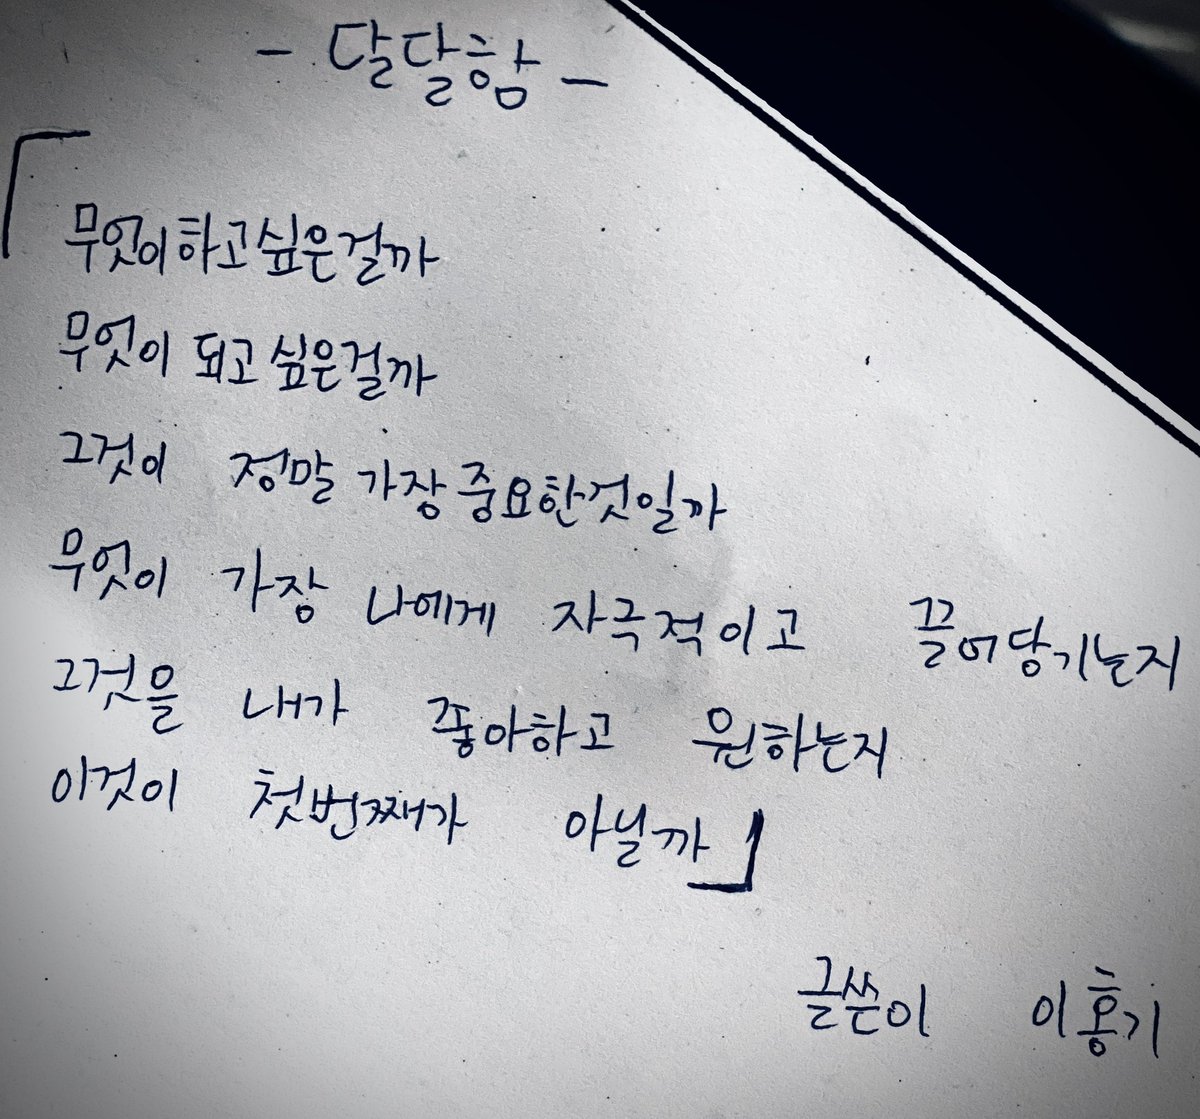 - 달달함 -
「무엇이하고싶은걸까
무엇이 되고싶은걸까
그것이 정말 가장중요한것일까
무엇이 가장 나에게 자극적이고 끌어당기는지
그것을 내가 좋아하고 원하는지
이것이 첫번째가 아닐까」
글쓴이 이홍기